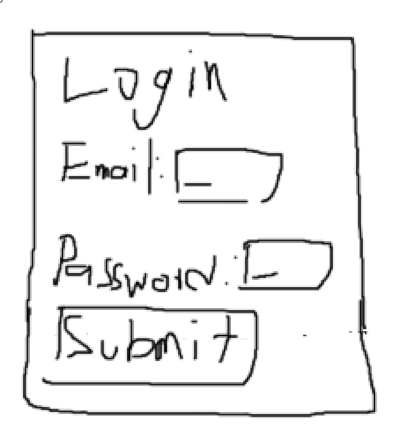 Login
Email:
Password:
Submit